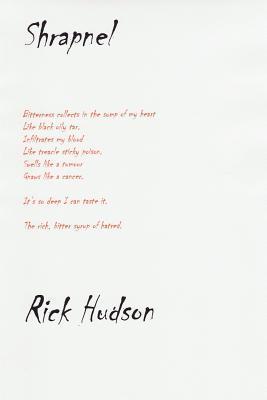 Shrapnel
Bitterness collects in the sump of my heart
Like black oily tar,
Infiltrates my blood
Like treacle sticky poison,
Swells like a tumour
Grows like a cancer.
It's so deep I can taste it.
The rich, bitter syrup of hatred.
Rick Hudson